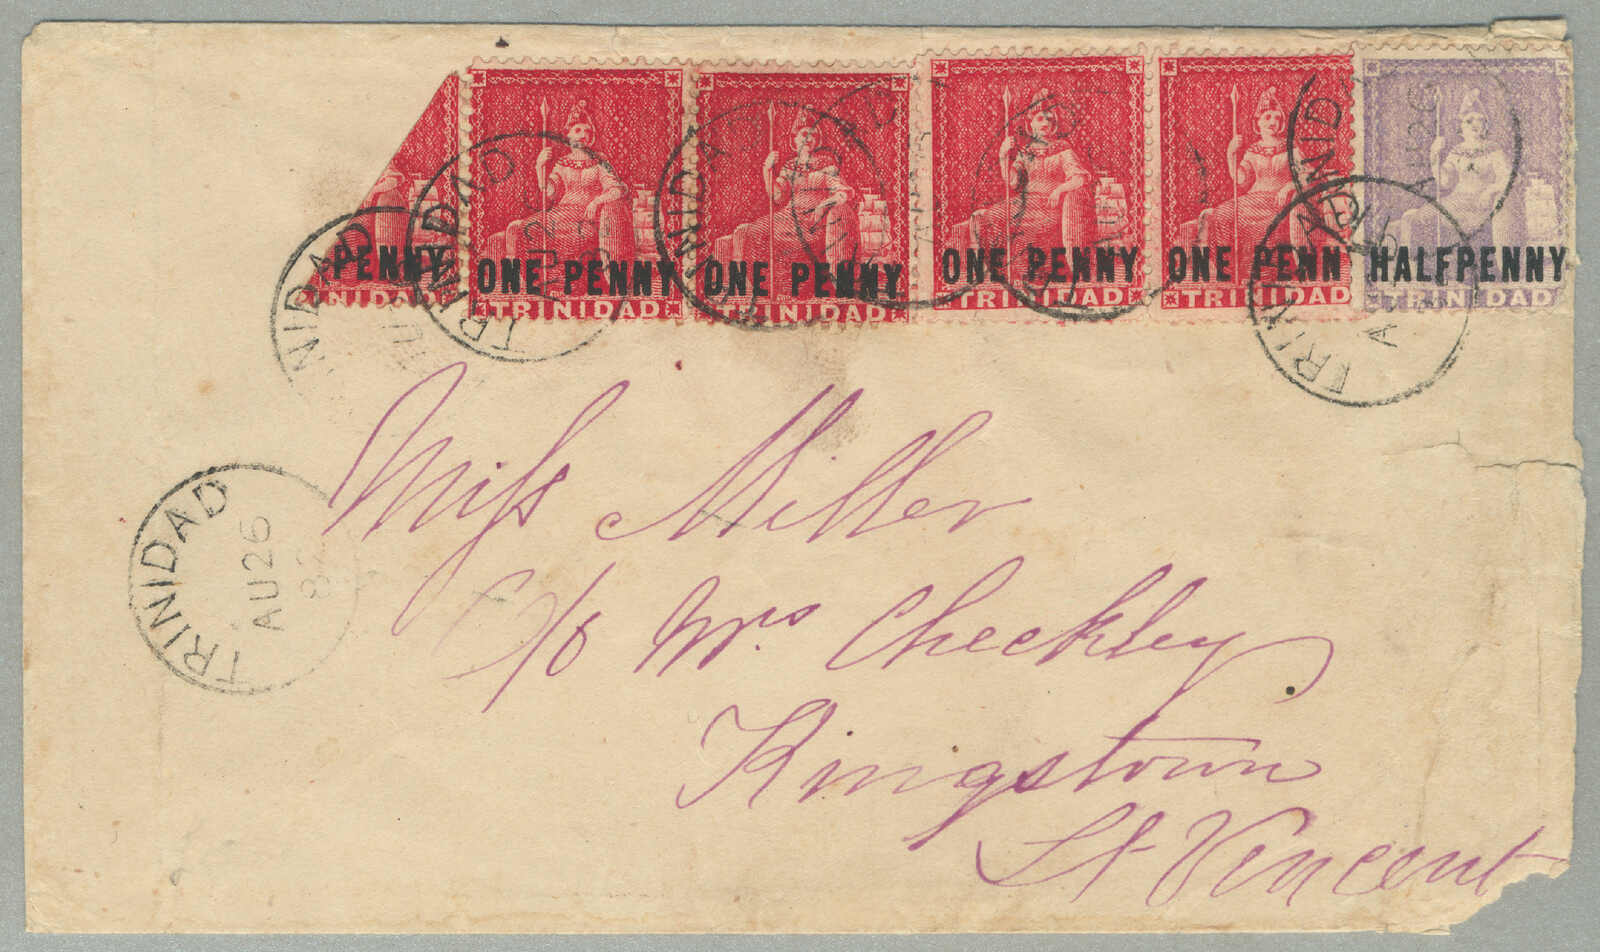 PENNY ONE PENNY ONE PENNY ONE PENNY ONE PENN HALFPENNY
TRINIDAD TRINIDAD TRINIDAD TRINIDAD TRINIDAD TRINIDAD
TRINIDAD
TRINIDAD
AU 26
Miss Miller
TRINIDAD
AU 26
82
c/o Mrs Checkley
Kingstown
St Vincent